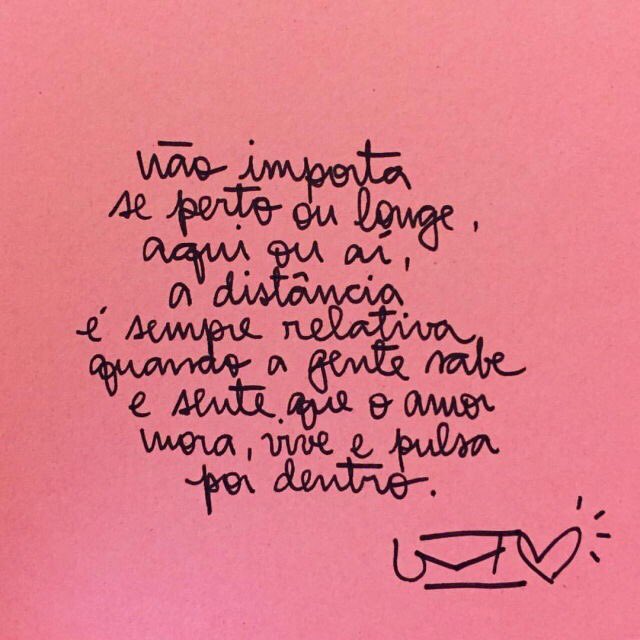 não importa
se perto ou longe,
aqui ou aí,
a distância
é sempre relativa
quando a gente sabe
e sente que o amor
mora, vive e pulsa
por dentro.